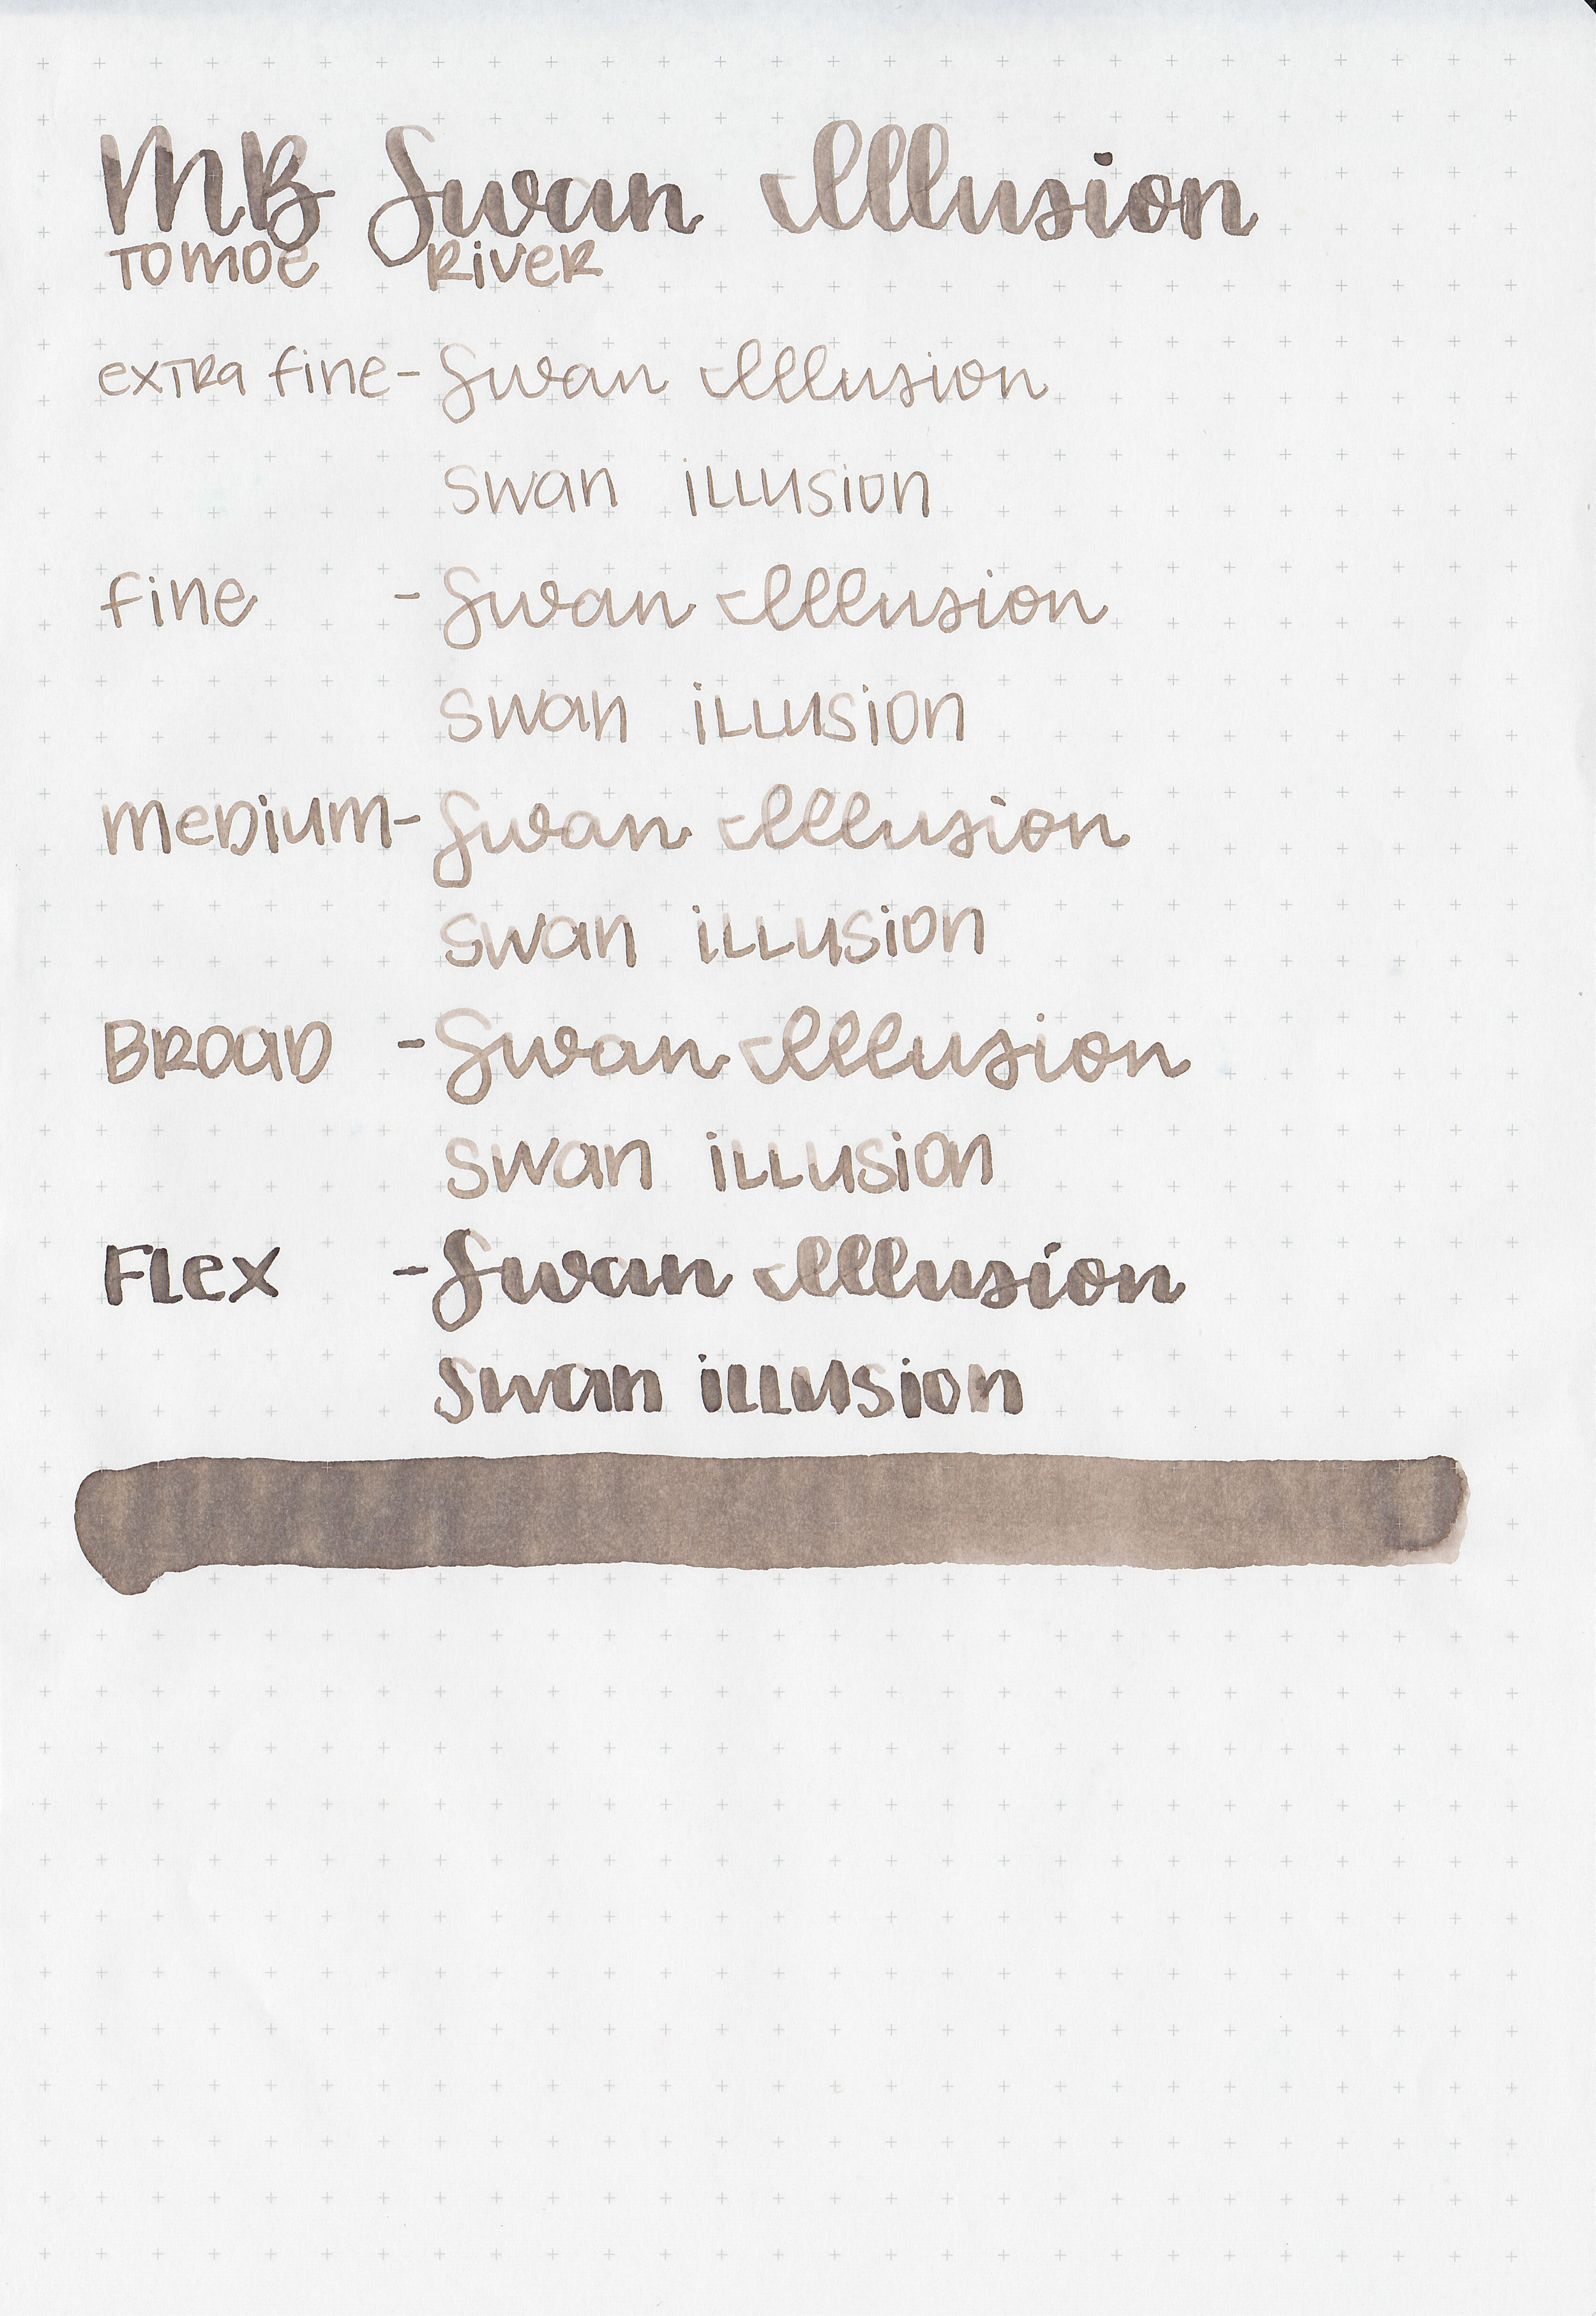 MB Swan Illusion
Tomoe River
extra fine - Swan Illusion
swan illusion
fine - Swan Illusion
swan illusion
medium - Swan Illusion
swan illusion
Broad - Swan Illusion
swan illusion
Flex - Swan Illusion
swan illusion